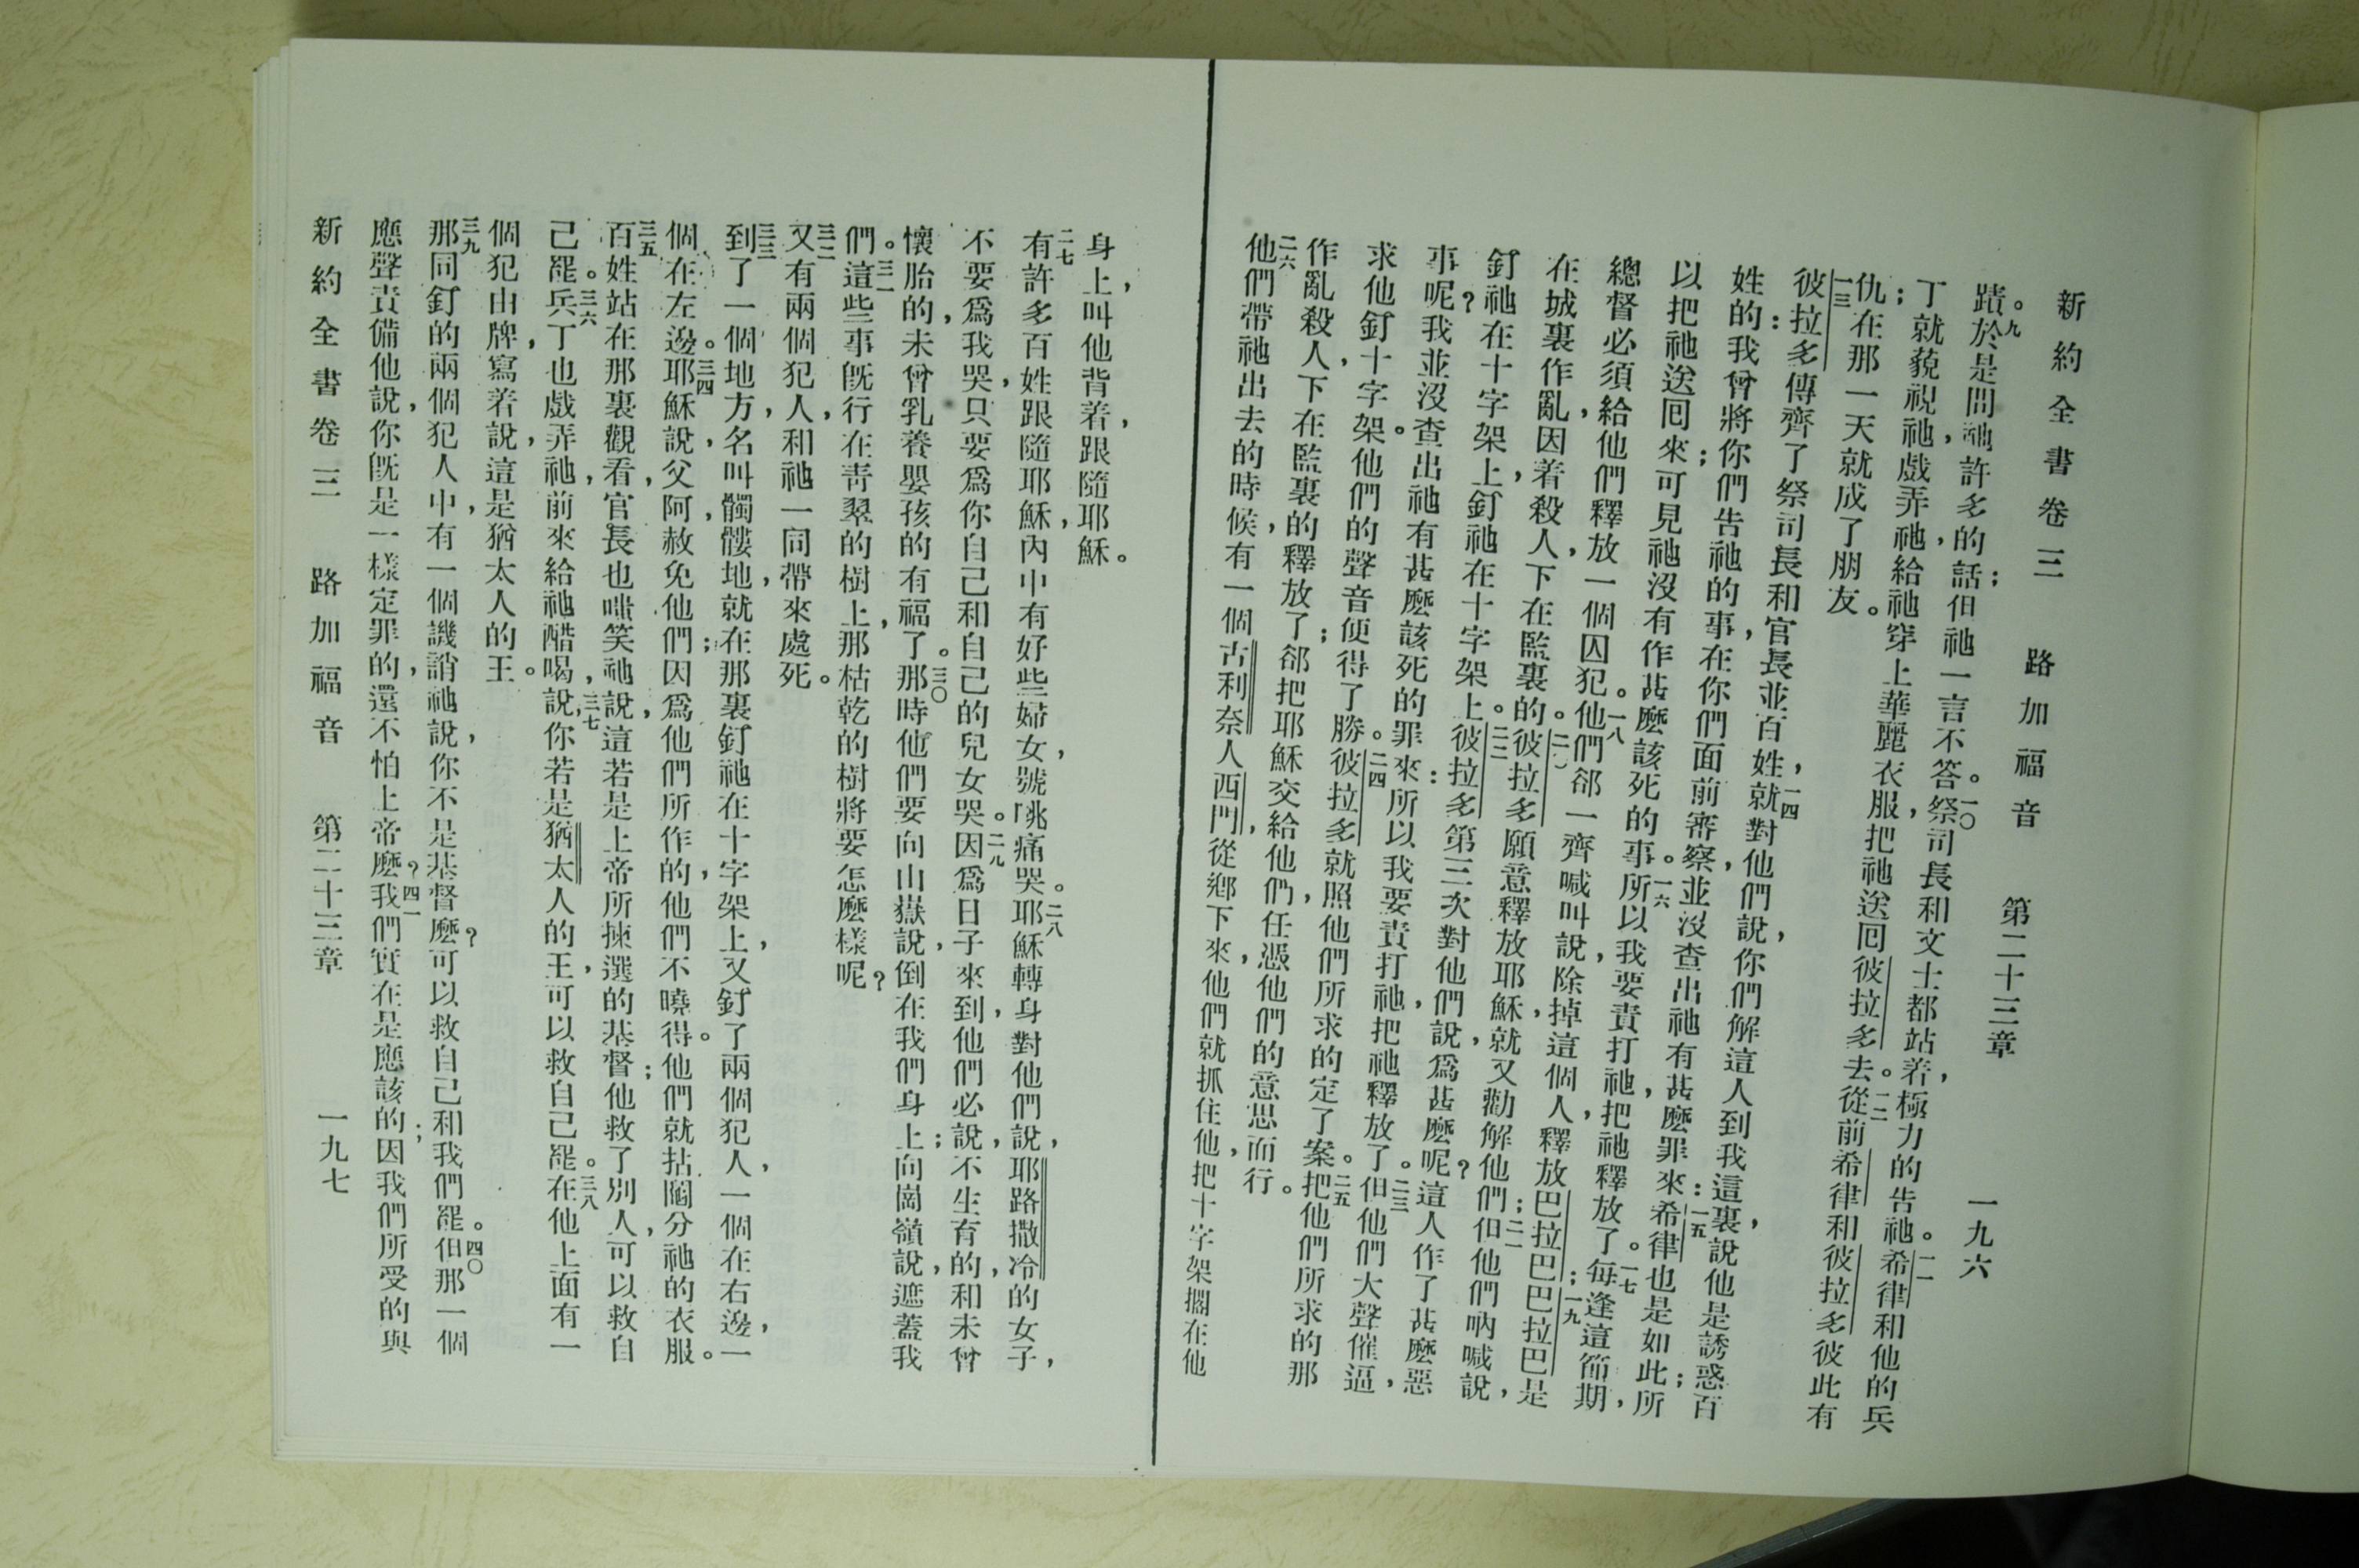 新約全書卷三 路加福音 第二十三章 一九六
蹟。九於是問祂許多的話；但祂一言不答。一〇祭司長和文士都站着，極力的告祂。一一希律和他的兵
丁就藐視祂，戲弄祂，給祂穿上華麗衣服，把祂送囘彼拉多去。一二從前希律和彼拉多彼此有
仇；在那一天就成了朋友。
一三彼拉多傳齊了祭司長和官長並百姓，一四就對他們說，你們解這人到我這裏，說他是誘惑百
姓的：我曾將你們告祂的事，在你們面前審察，並沒查出祂有甚麽罪來：一五希律也是如此；所
以把祂送囘來；可見祂沒有作甚麽該死的事。一六所以我要責打祂，把祂釋放了。一七每逢這節期，
總督必須給他們釋放一個囚犯。一八他們郤一齊喊叫說，除掉這個人，釋放巴拉巴；一九巴拉巴是
在城裏作亂，因着殺人，下在監裏的。二〇彼拉多願意釋放耶穌，就又勸解他們；二一但他們吶喊說，
釘祂在十字架上，釘祂在十字架上。二二彼拉多第三次對他們說，爲甚麽呢？這人作了甚麽惡
事呢？我並沒查出祂有甚麽該死的罪來：所以我要責打祂，把祂釋放了。二三但他們大聲催逼，
求他釘十字架。他們的聲音便得了勝。二四彼拉多就照他們所求的定了案。二五把他們所求的那
作亂殺人，下在監裏的釋放了；郤把耶穌交給他們，任憑他們的意思而行。
二六他們帶祂出去的時候，有一個古利奈人西門，從鄉下來，他們就抓住他，把十字架擱在他
身上，叫他背着，跟隨耶穌。
二七有許多百姓跟隨耶穌，內中有好些婦女，號咷痛哭。二八耶穌轉身對他們說，耶路撒冷的女子，
不要爲我哭，只要爲你自己和自己的兒女哭。二九因爲日子來到，他們必說，不生育的，和未曾
懷胎的，未曾乳養嬰孩的有福了。三〇那時他們要向山嶽說，倒在我們身上；向崗嶺說，遮蓋我
們。三一這些事旣行在靑翠的樹上，那枯乾的樹將要怎麽樣呢？
三二又有兩個犯人，和祂一同帶來處死。
三三到了一個地方，名叫髑髏地，就在那裏釘祂在十字架上，又釘了兩個犯人，一個在右邊，一
個在左邊。三四耶穌說，父阿，赦免他們；因爲他們所作的，他們不曉得。他們就拈鬮分祂的衣服。
三五百姓站在那裏觀看，官長也嗤笑祂說，這若是上帝所揀選的基督；他救了別人，可以救自
己罷。三六兵丁也戲弄祂，前來給祂醋喝，三七說，你若是猶太人的王，可以救自己罷。三八在他上面有一
個犯由牌，寫着說，這是猶太人的王。
三九那同釘的兩個犯人中，有一個譏誚祂說，你不是基督麽？可以救自己和我們罷。四〇但那一個
應聲責備他說，你旣是一樣定罪的，還不怕上帝麽？四一我們實在是應該的；因我們所受的與
新約全書卷三 路加福音 第二十三章 一九七